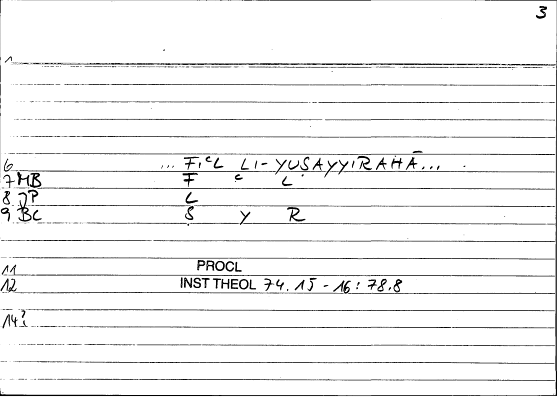 3
1
6 ... FIʿL LI-YUSAYYIRAHĀ...
7 MB F ʿ L
8 JP L
9 BC S Y R
11 PROCL
12 INST THEOL 74.15-16: 78.8
14?